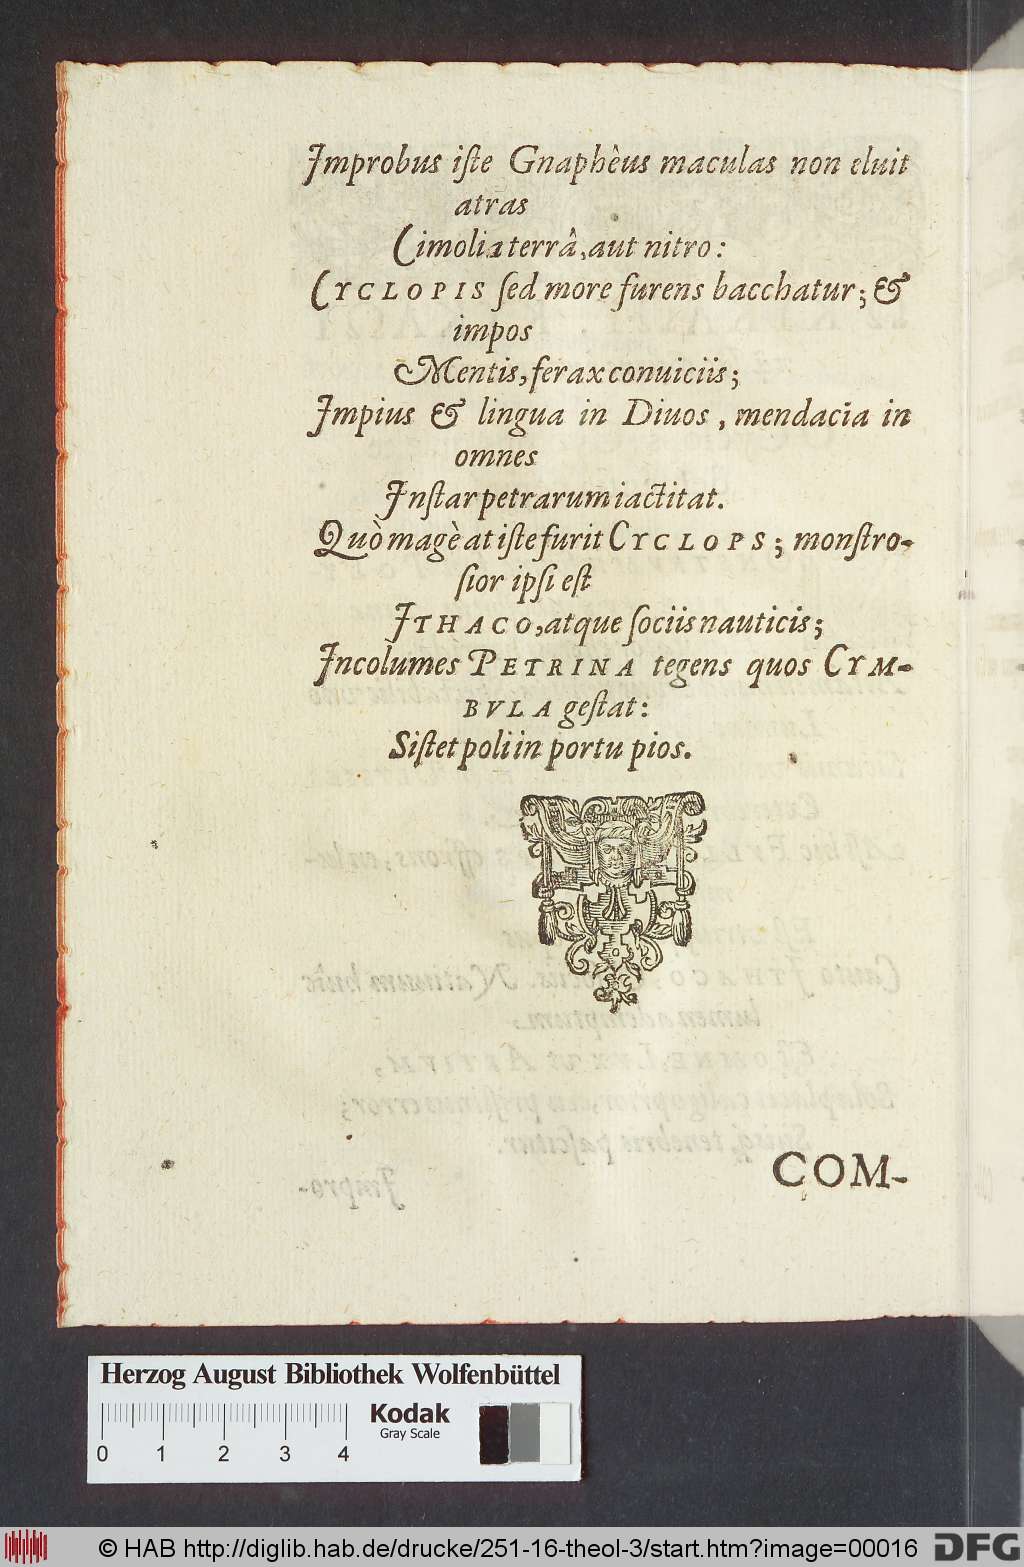 Improbus iſte Gnaphêus maculas non eluit
atras
Cimolia terrâ, aut nitro:
CYCLOPIS ſed more furens bacchatur; &
impos
Mentis, ferax conuiciis;
Impius & lingua in Diuos, mendacia in
omnes
Inſtar petrarum iactitat.
Quò magè at iſte furit CYCLOPS; monſtro-
ſior ipſi eſt
ITHACO, atque ſociis nauticis;
Incolumes PETRINA tegens quos CYM-
BVLA geſtat:
Siſtet poli in portu pios.
COM-
Herzog August Bibliothek Wolfenbüttel
Kodak
Gray Scale
0 1 2 3 4
© HAB http://diglib.hab.de/drucke/251-16-theol-3/start.htm?image=00016
DFG